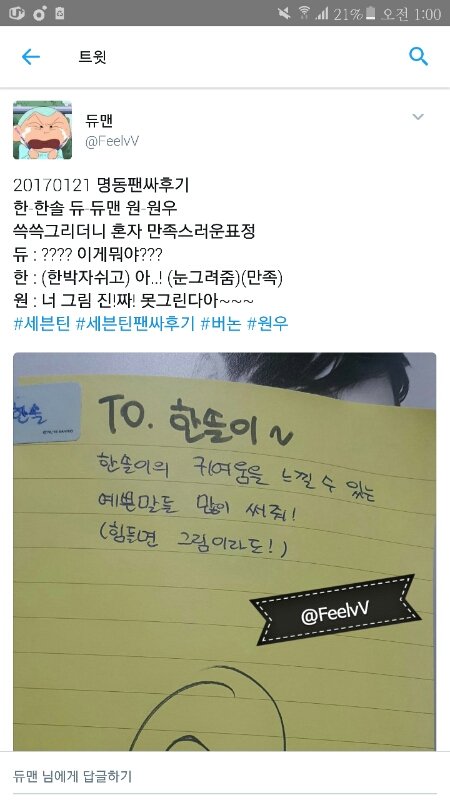 21% 오전 1:00
트윗
듀맨
@FeelvV
20170121 명동팬싸후기
한-한솔 듀-듀맨 원-원우
쓱쓱그리더니 혼자 만족스러운표정
듀 : ???? 이게뭐야???
한 : (한박자쉬고) 아..! (눈그려줌)(만족)
원 : 너 그림 진!짜! 못그린다아~~~
#세븐틴 #세븐틴팬싸후기 #버논 #원우
한솔
TO. 한쏠이~
한솔이의 귀여움을 느낄 수 있는
예쁜말들 많이 써줘!
(힘들면 그림이라도!)
@FeelvV
듀맨 님에게 답글하기